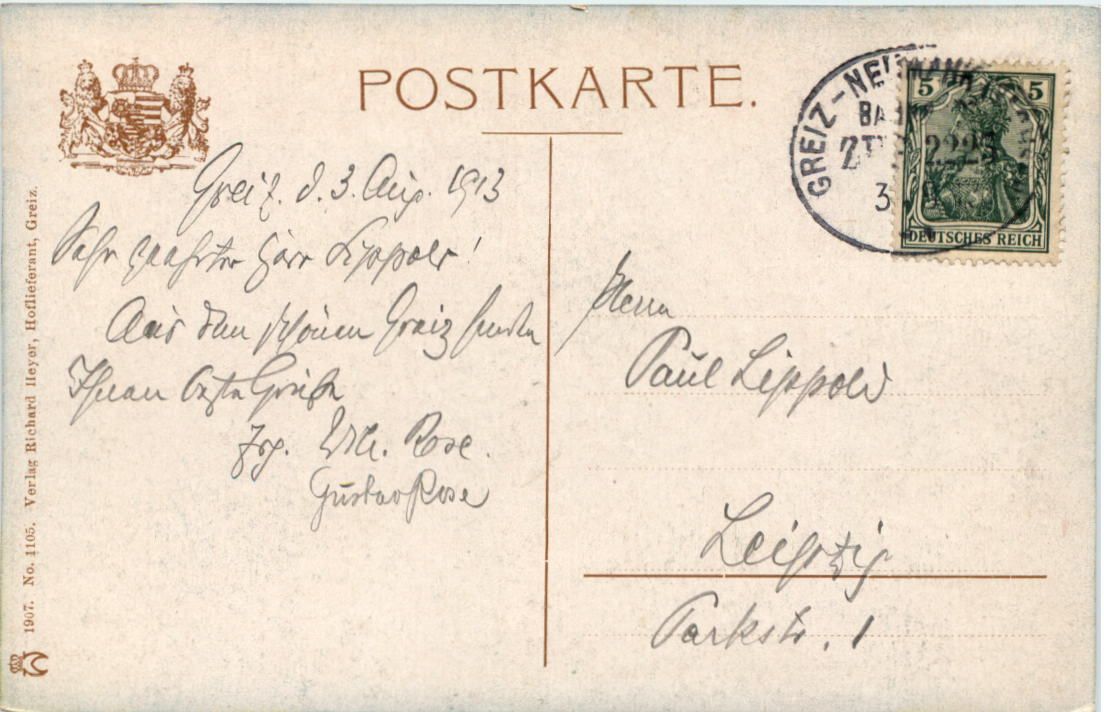 POSTKARTE.
Greiz. d. 3. Aug. 1913
Sehr geehrter Herr Lippold!
Aus dem schönen Greiz senden
Ihnen beste Grüße
Wilh. Rose.
Gustav Rose
Herrn
Paul Lippold
Leipzig
Parkstr. 1
GREIZ-NEUMARK
BAH
ZUG 2223
3
5 5
DEUTSCHES REICH
1907. No. 1105. Verlag Richard Heyer, Hoflieferant, Greiz.